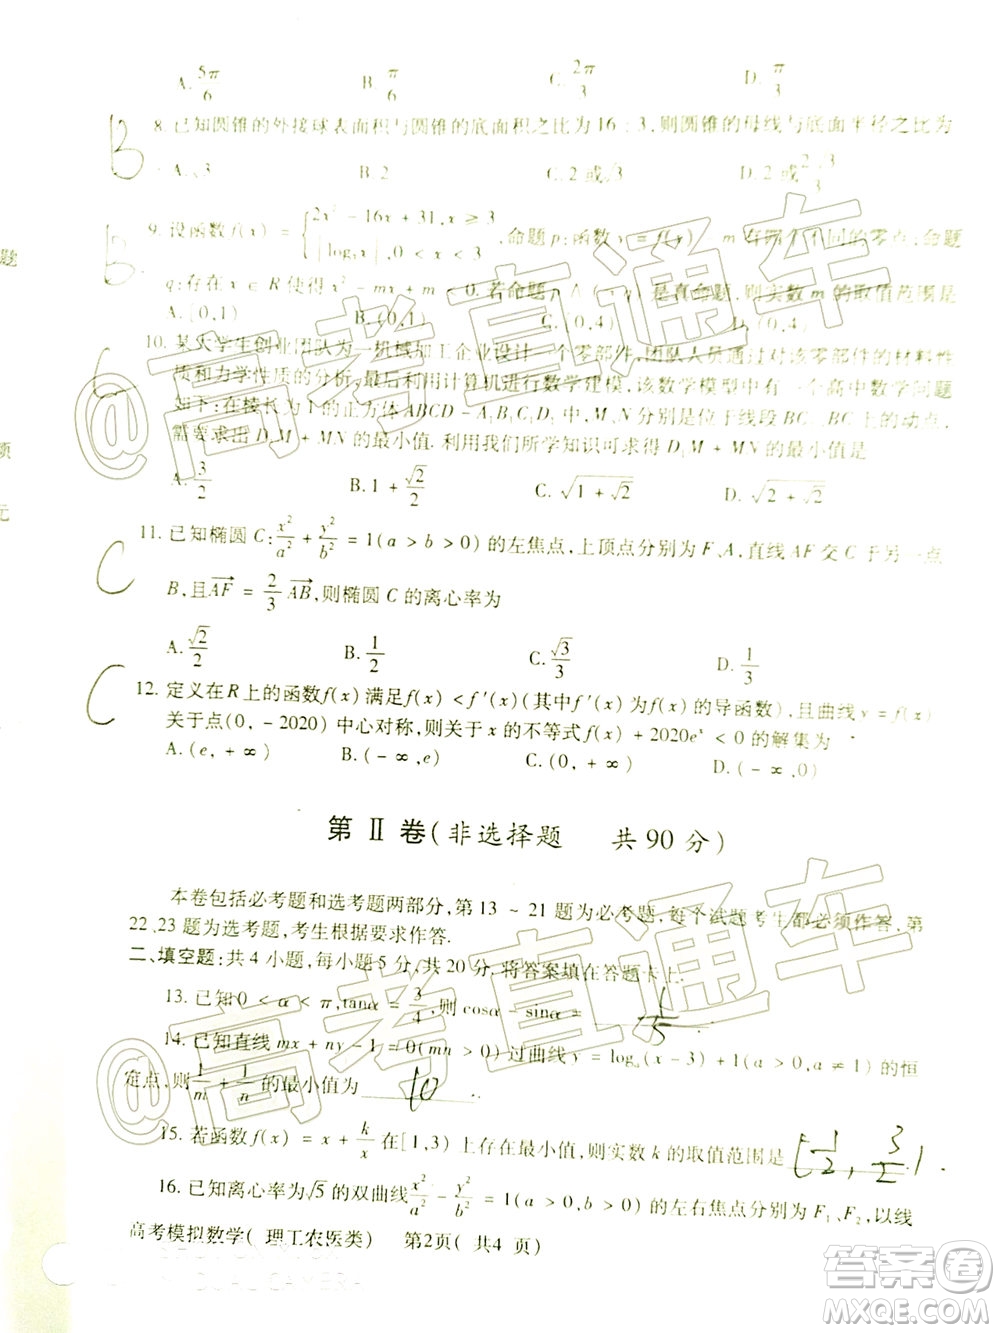 A. 5π/6 B. π/6 C. 2π/3 D. π/3
B 8. 已知圆锥的外接球表面积与圆锥的底面积之比为16:3,则圆锥的母线与底面半径之比为
A. √3 B. 2 C. 2 或 √3 D. 2 或 2√3/3
B 9. 设函数 f(x) = { 2x² - 16x + 31, x ≥ 3
|log₃x|, 0 < x < 3 ,命题 p:函数 y = f(x) - m 有两个不同的零点;命题
q:存在 x ∈ R 使得 x² - mx + m < 0. 若命题 p ∧ (¬q) 是真命题,则实数 m 的取值范围是
A. [0,1) B. (0,1) C. (0,4) D. [0,4)
C 10. 某大学生创业团队为一机械加工企业设计一个零部件,团队人员通过对该零部件的材料性
质和力学性质的分析,最后利用计算机进行数学建模,该数学模型中有一个高中数学问题
如下:在棱长为1的正方体ABCD - A₁B₁C₁D₁中,M、N分别是位于线段BC₁、BC上的动点,
需要求出D₁M + MN的最小值.利用我们所学知识可求得D₁M + MN的最小值是
A. 3/2 B. 1 + √2/2 C. √(1 + √2) D. √(2 + √2)
C 11. 已知椭圆 C: x²/a² + y²/b² = 1(a > b > 0) 的左焦点,上顶点分别为F、A,直线AF交C于另一点
B,且AF = 2/3 AB,则椭圆 C 的离心率为
A. √2/2 B. 1/2 C. √3/3 D. 1/3
C 12. 定义在R上的函数f(x)满足f(x) < f′(x)(其中f′(x)为f(x)的导函数),且曲线y = f(x)
关于点(0, - 2020)中心对称,则关于x的不等式f(x) + 2020eˣ < 0的解集为
A. (e, + ∞) B. (- ∞,e) C. (0, + ∞) D. (- ∞,0)
第 Ⅱ 卷(非选择题 共90分)
本卷包括必考题和选考题两部分,第13 ~ 21题为必考题,每个试题考生都必须作答,第
22、23题为选考题,考生根据要求作答.
二、填空题:共4小题,每小题5分,共20分,将答案填在答题卡上.
13. 已知0 < α < π,tanα = 3/4,则 cosα - sinα = 1/5
14. 已知直线 mx + ny - 1 = 0(mn > 0)过曲线 y = logₐ(x - 3) + 1(a > 0, a ≠ 1) 的恒
定点,则 1/m + 1/n 的最小值为 10 .
15. 若函数f(x) = x + k/x 在[1,3)上存在最小值,则实数k的取值范围是 [1/2, 3/2].
16. 已知离心率为√5的双曲线 x²/a² - y²/b² = 1(a > 0,b > 0)的左右焦点分别为F₁、F₂,以线
高考模拟数学(理工农医类) 第2页(共4页)
题
项
元
@高考直通车
@高考直通车
DUAL CAMERA
答案圈
MXQE.COM